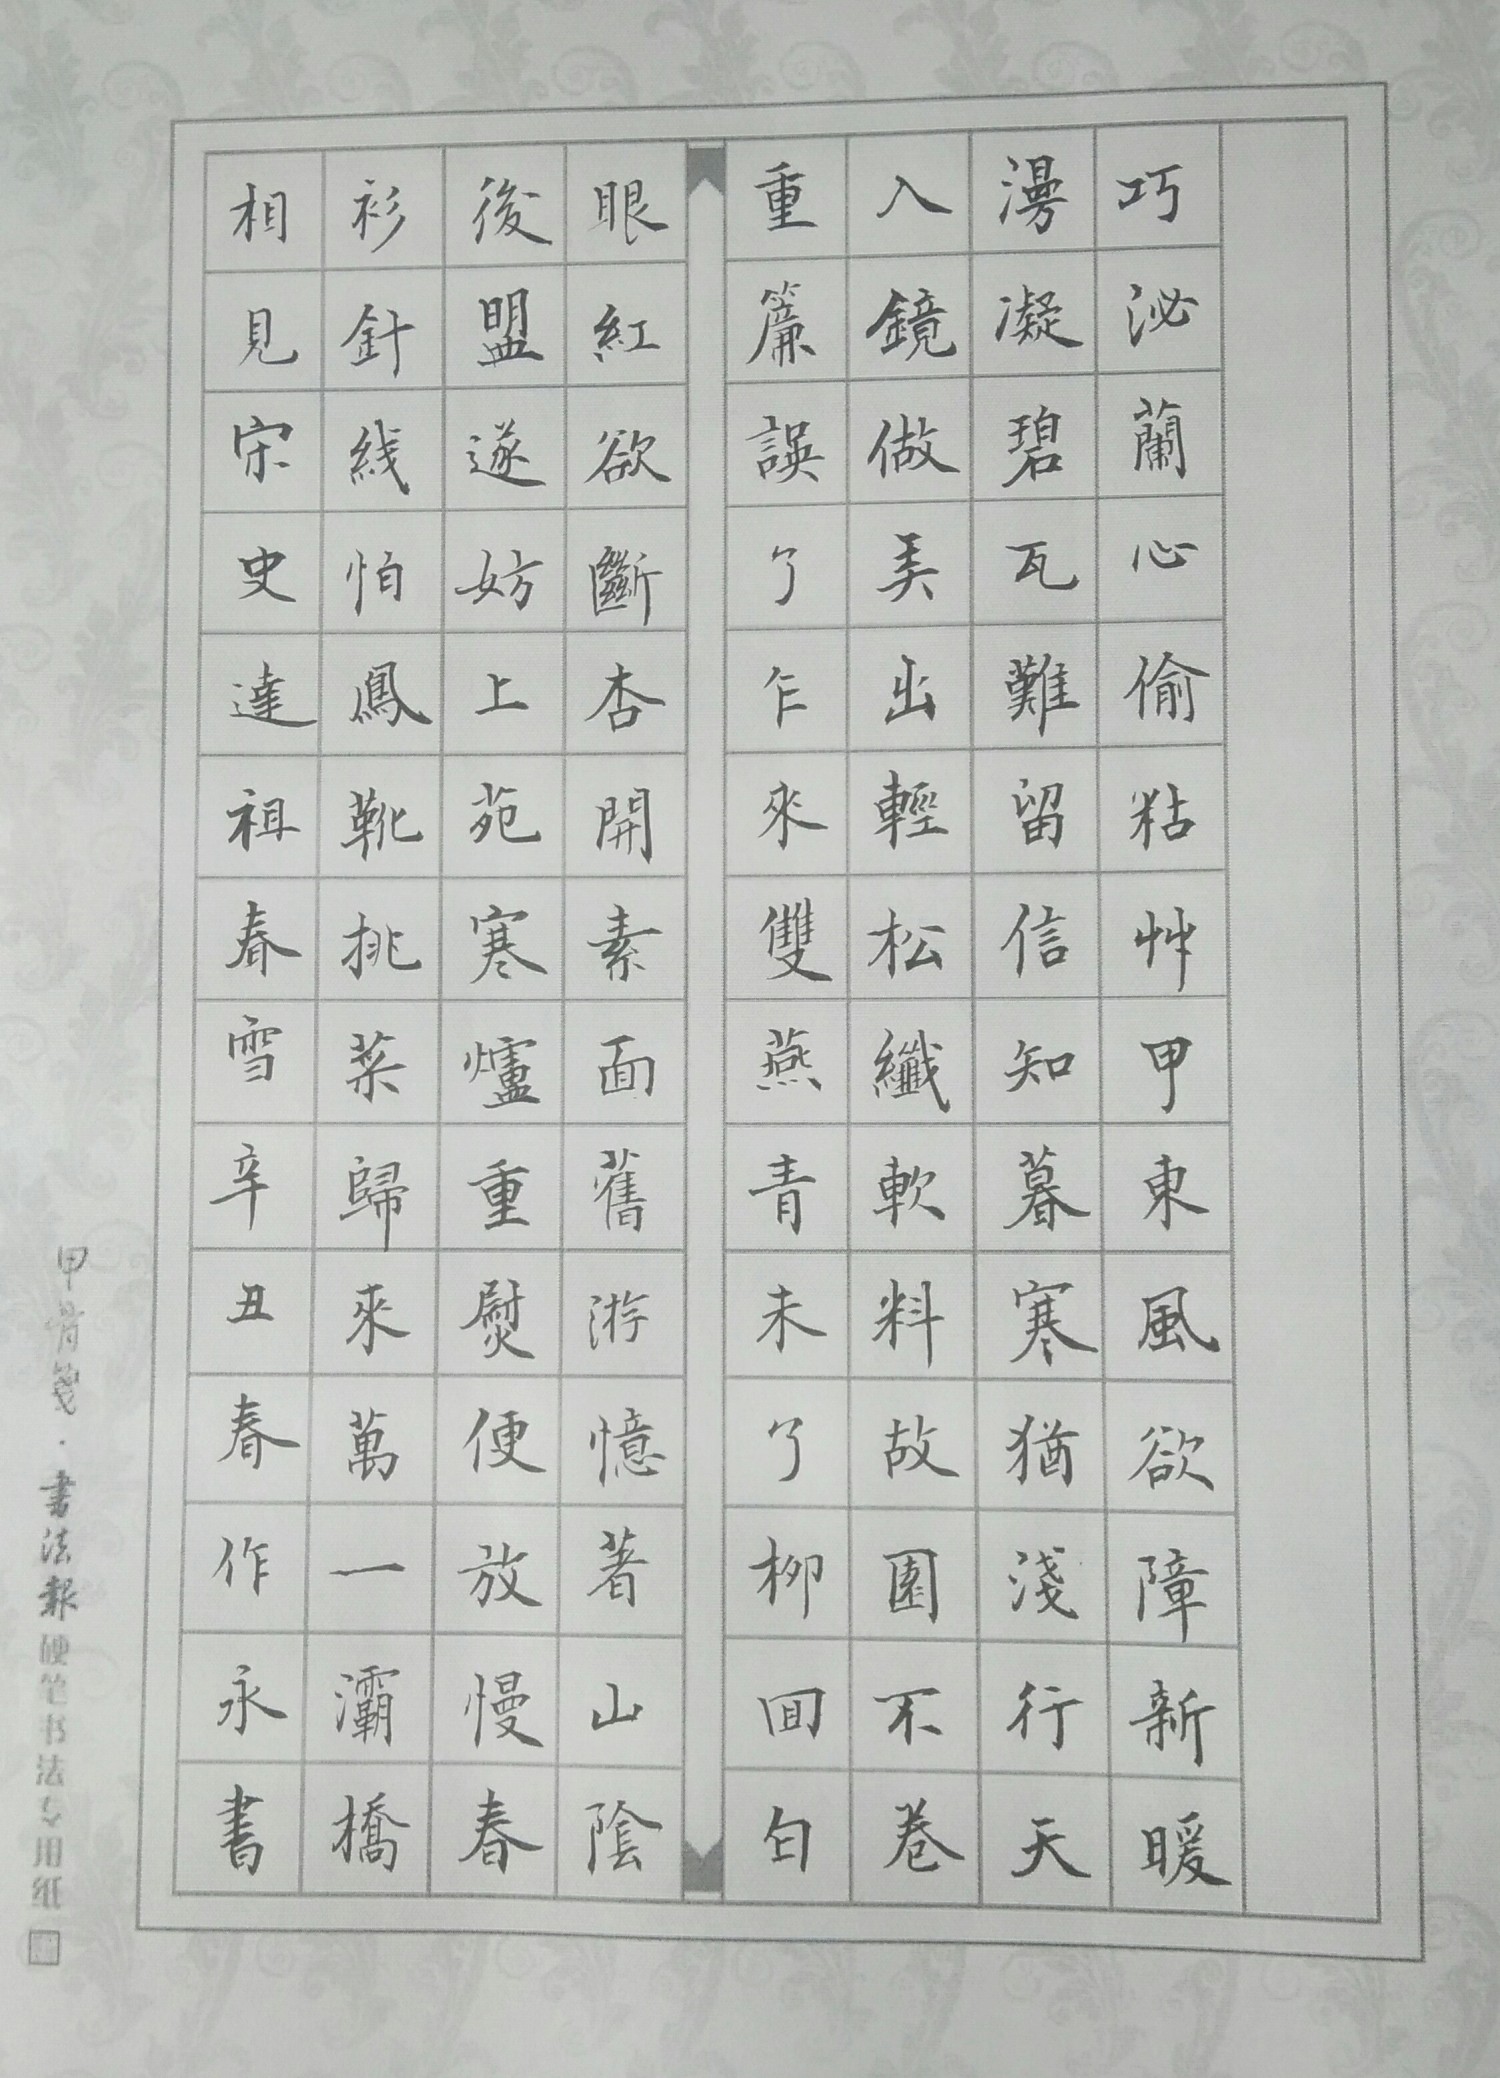 巧泌蘭心偷粘艸甲東風欲障新暖
漫凝碧瓦難留信知暮寒猶淺行天
入鏡做美出輕松纖軟料故園不卷
重簾誤了乍來雙燕青未了柳囬白
眼紅欲斷杏開素面舊游憶著山陰
後盟遂妨上苑寒爐重熨便放慢春
衫針綫怕鳳靴挑菜歸來萬一灞橋
相見宋史達祖春雪辛丑春作永書
甲骨箋·書法報硬笔书法专用纸